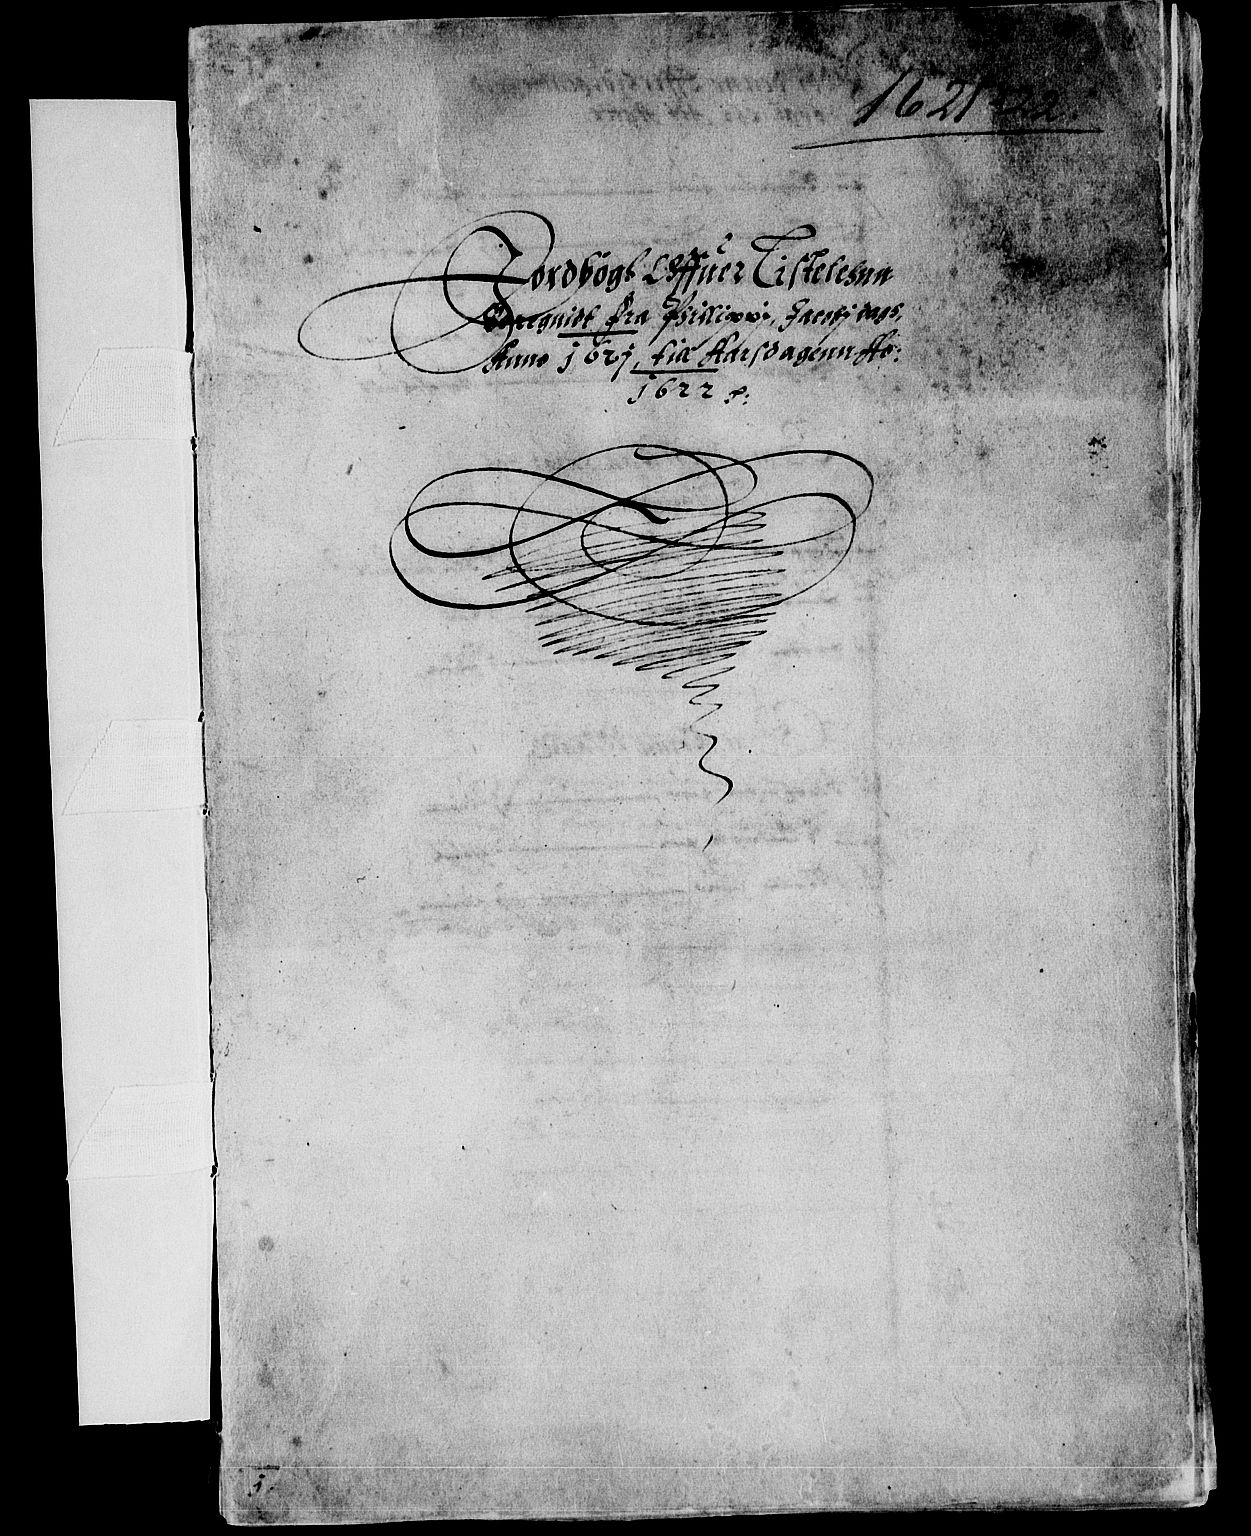 1621-22.
Jordbögh Offuer Tistelehnn
Beregnidt fra Phillippi, Jacobj dags,
Anno j62j, till Aarsdagenn Ao:
j622 p:
j.